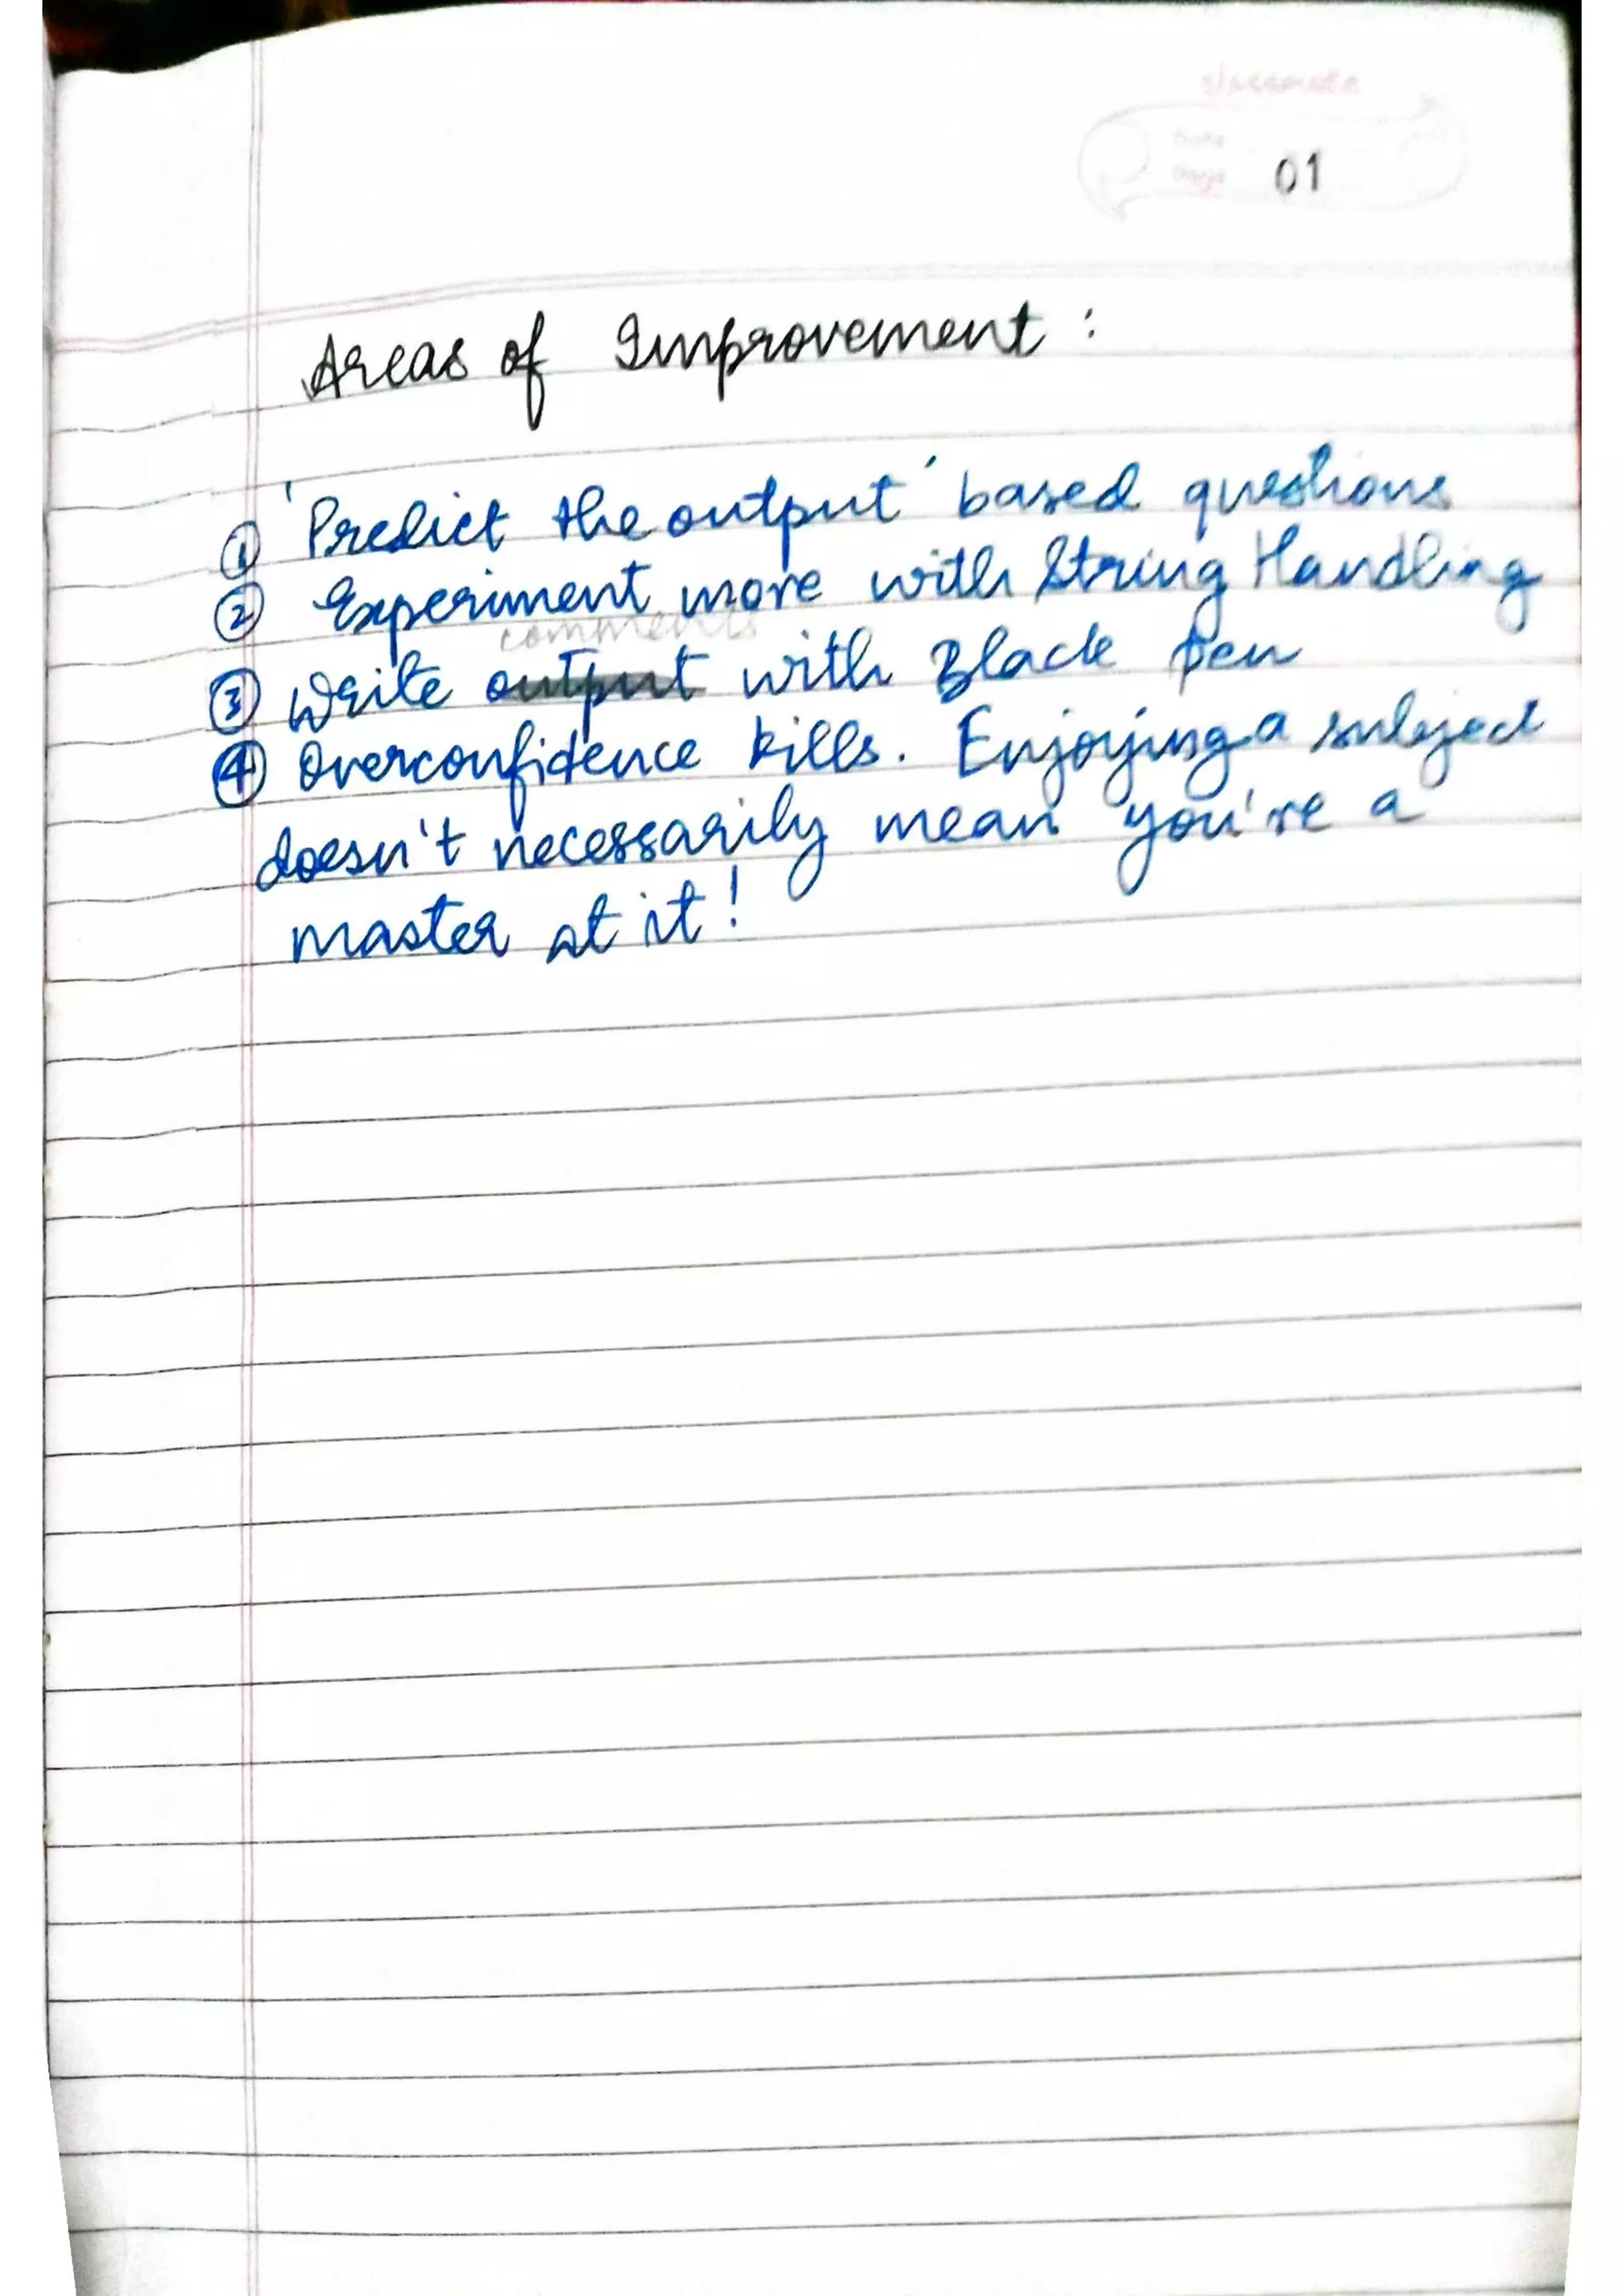 classmate
Date
Page 01
Areas of Improvement :
① 'Predict the output' based questions
② Experiment more with String Handling
comments
③ Write output with Black pen
④ Overconfidence kills. Enjoying a subject
doesn't necessarily mean you're a
master at it!